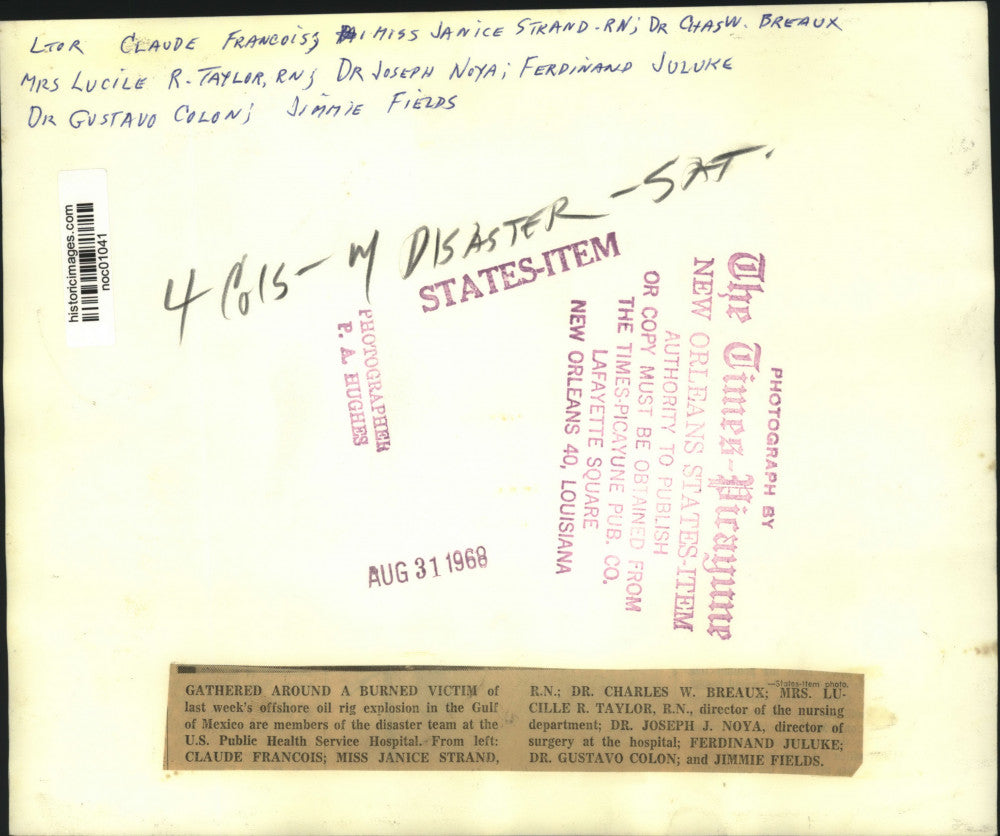 LTOR CLAUDE FRANCOIS; MISS JANICE STRAND-RN; DR CHAS W. BREAUX
MRS LUCILE R. TAYLOR, RN; DR JOSEPH NOYA; FERDINAND JULUKE
DR GUSTAVO COLON; JIMMIE FIELDS
historicimages.com
noc01041
4 Cols - M DISASTER - SAT.
STATES-ITEM
PHOTOGRAPHER
P. A. HUGHES
PHOTOGRAPH BY
The Times-Picayune
NEW ORLEANS STATES-ITEM
AUTHORITY TO PUBLISH
OR COPY MUST BE OBTAINED FROM
THE TIMES-PICAYUNE PUB. CO.
LAFAYETTE SQUARE
NEW ORLEANS 40, LOUISIANA
AUG 31 1968
—States-Item photo.
GATHERED AROUND A BURNED VICTIM of
last week's offshore oil rig explosion in the Gulf
of Mexico are members of the disaster team at the
U.S. Public Health Service Hospital. From left:
CLAUDE FRANCOIS; MISS JANICE STRAND,
R.N.; DR. CHARLES W. BREAUX; MRS. LU-
CILLE R. TAYLOR, R.N., director of the nursing
department; DR. JOSEPH J. NOYA, director of
surgery at the hospital; FERDINAND JULUKE;
DR. GUSTAVO COLON; and JIMMIE FIELDS.